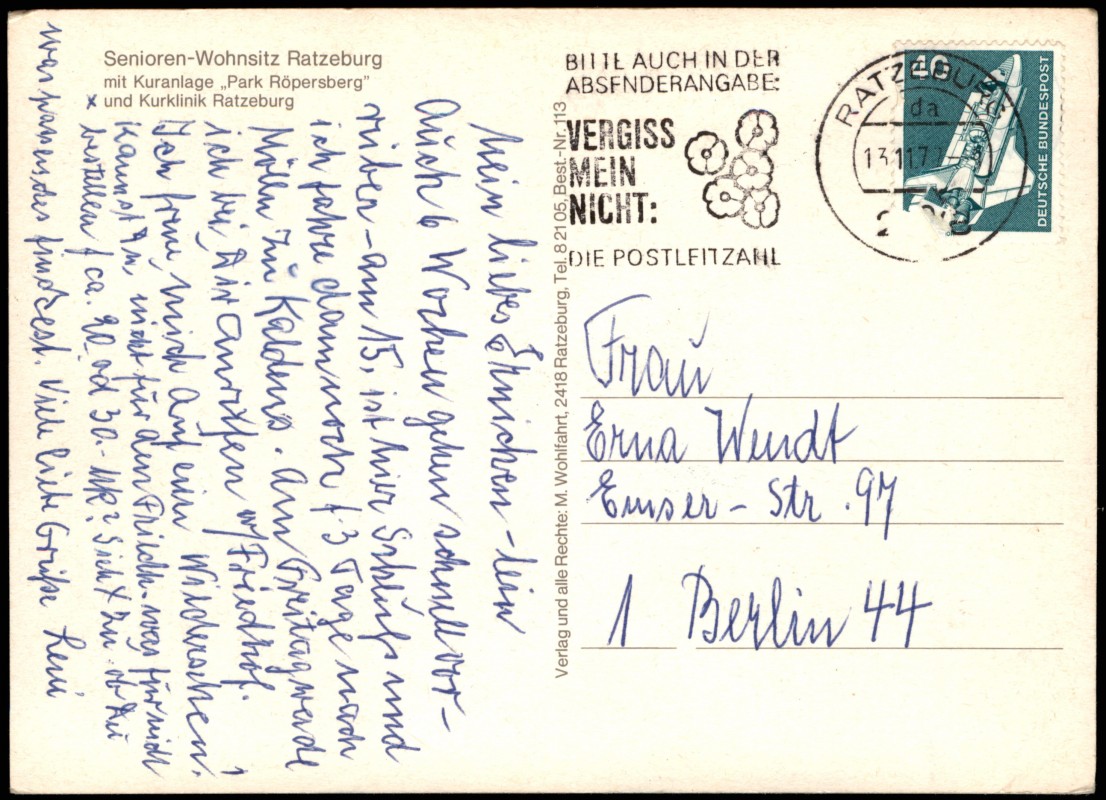 Senioren-Wohnsitz Ratzeburg
mit Kuranlage „Park Röpersberg"
x und Kurklinik Ratzeburg
Mein liebes Ernichen-lein
Auch 6 Wochen gehen schnell vor-
rüber - am 15. ist hier Schluß und
ich fahre dann noch f 3 Tage nach
Mölln zu Kaldens. Am Freitag werde
ich bei Dir anrufen w/ Friedhof.
Ich freue mich auf ein Wiedersehen.
Kannst Du nicht für den Friedh. was für mich
bestellen f ca. 20 od 30.- MK? Sieh X zu ob Du
was passendes findest. Viele liebe Grüße Leni
Verlag und alle Rechte: M. Wohlfahrt, 2418 Ratzeburg, Tel. 8 21 05, Best.-Nr. 1113
BITTE AUCH IN DER
ABSENDERANGABE:
VERGISS
MEIN
NICHT:
DIE POSTLEITZAHL
RATZEBURG
da
13.11.7
40
DEUTSCHE BUNDESPOST
Frau
Erna Wendt
Emser - Str. 97
1 Berlin 44